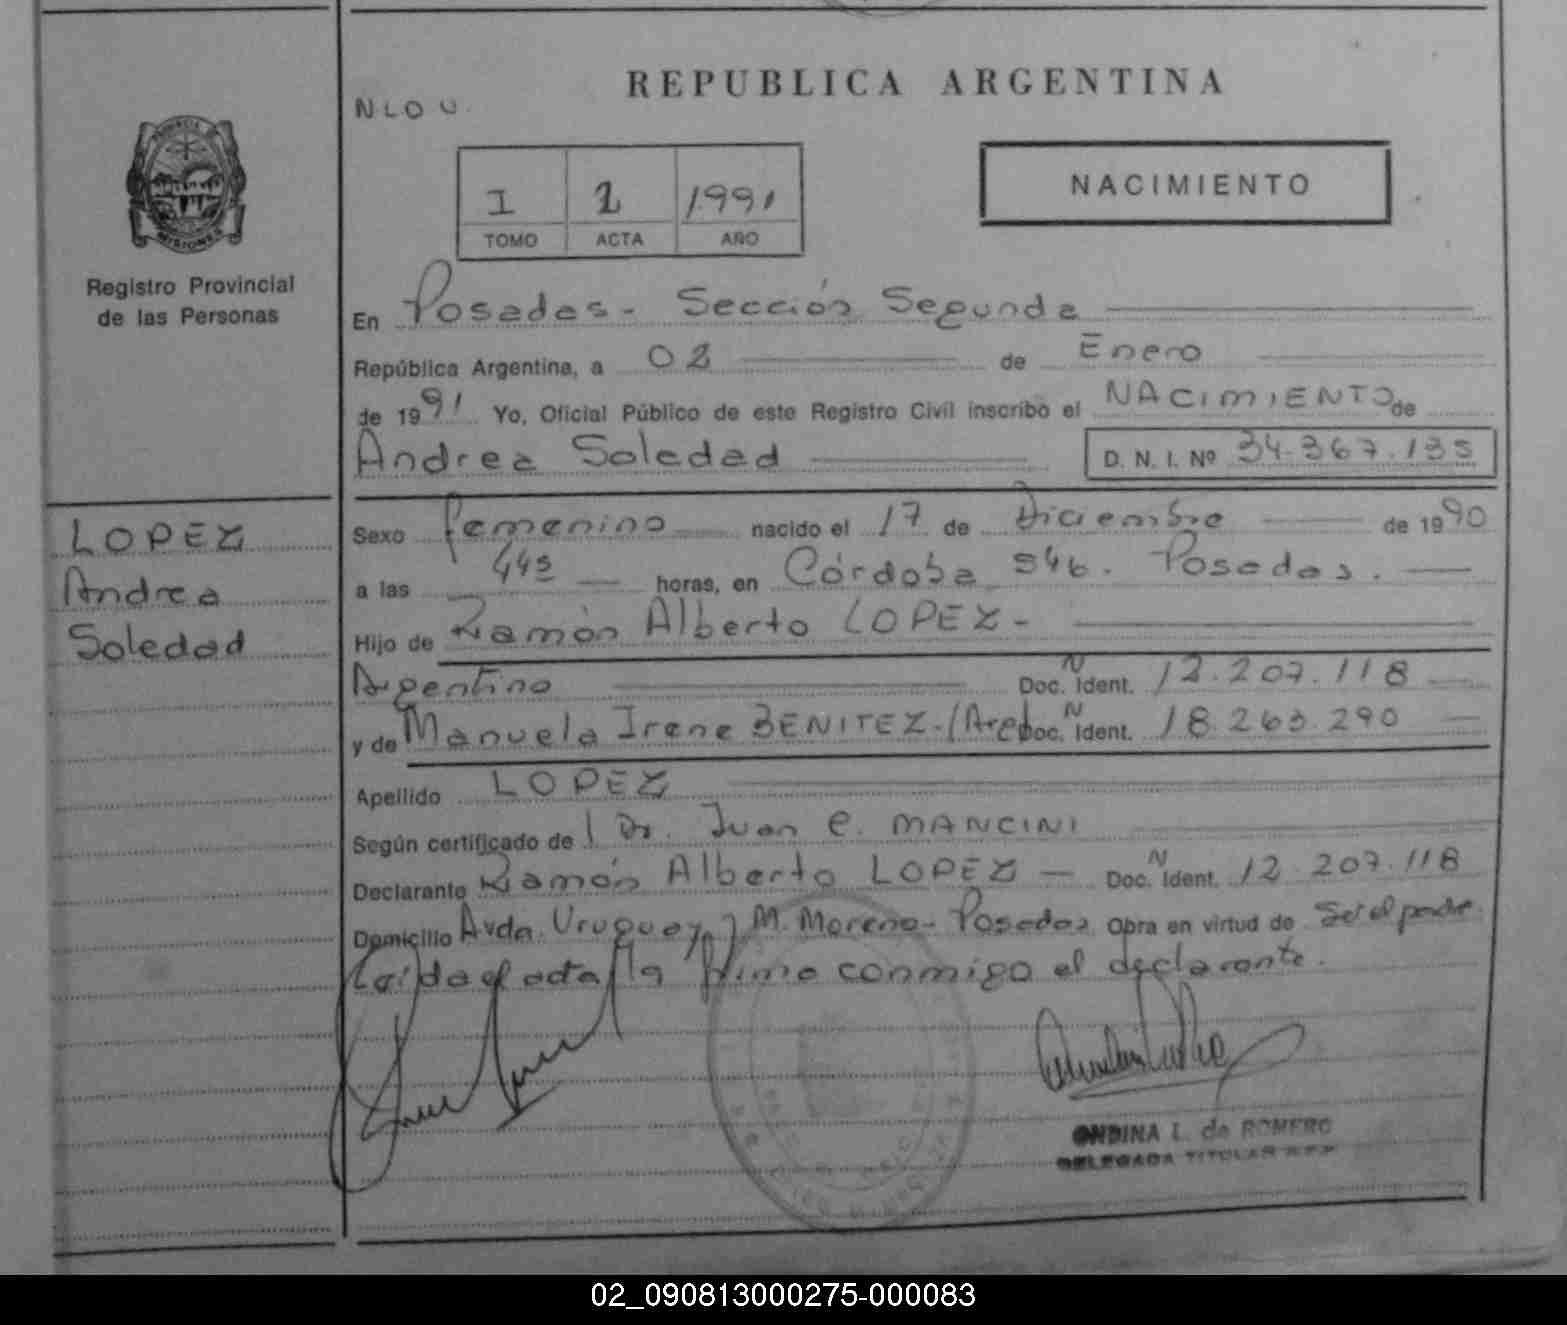 REPUBLICA ARGENTINA
NLOU.
I 2 1991
TOMO ACTA AÑO
NACIMIENTO
PROVINCIA DE
MISIONES
Registro Provincial
de las Personas
En Posadas - Sección Segunda
República Argentina, a 02 de Enero
de 1991 Yo, Oficial Público de este Registro Civil inscribo el NACIMIENTO de
Andrea Soledad D. N. I. Nº 34.367.135
LOPEZ
Andrea
Soledad
Sexo femenino nacido el 17 de Diciembre de 1990
a las 445 horas, en Córdoba 546. Posadas.
Hijo de Ramón Alberto LOPEZ -
Argentino Doc. N Ident. 12.207.118
y de Manuela Irene BENITEZ - (Arg) Doc. N Ident. 18.263.290
Apellido LOPEZ
Según certificado de Dr. Juan C. MANCINI
Declarante Ramón Alberto LOPEZ - Doc. N Ident. 12.207.118
Domicilio Avda. Uruguay y M. Moreno - Posadas Obra en virtud de Ser el padre.
Leída el acta la firma conmigo el declarante.
ONDINA L. de ROMERO
DELEGADA TITULAR R.P.P.
02_090813000275-000083